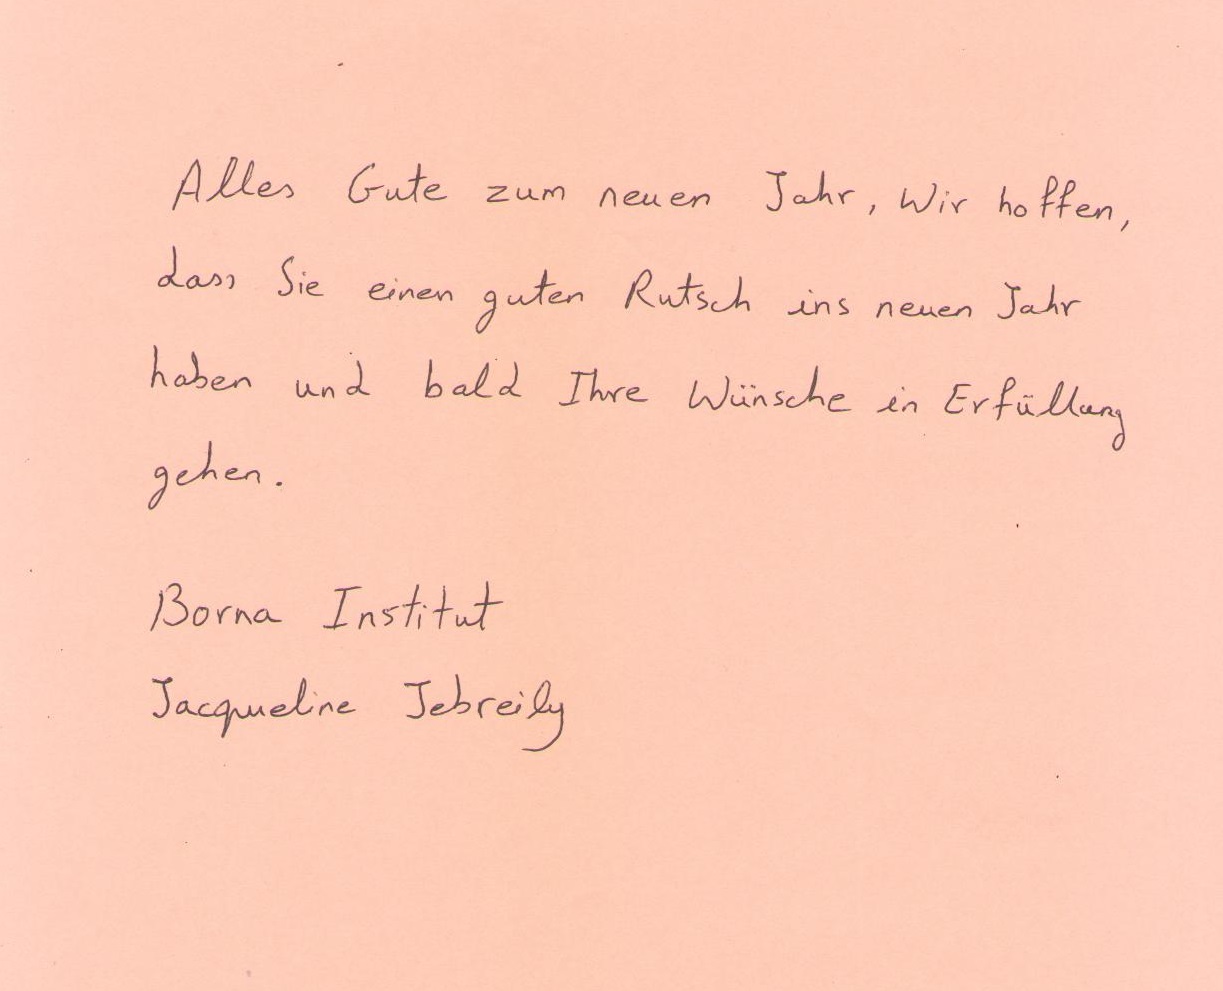 Alles Gute zum neuen Jahr, Wir hoffen,
dass Sie einen guten Rutsch ins neuen Jahr
haben und bald Ihre Wünsche in Erfüllung
gehen.
Borna Institut
Jacqueline Jebreily